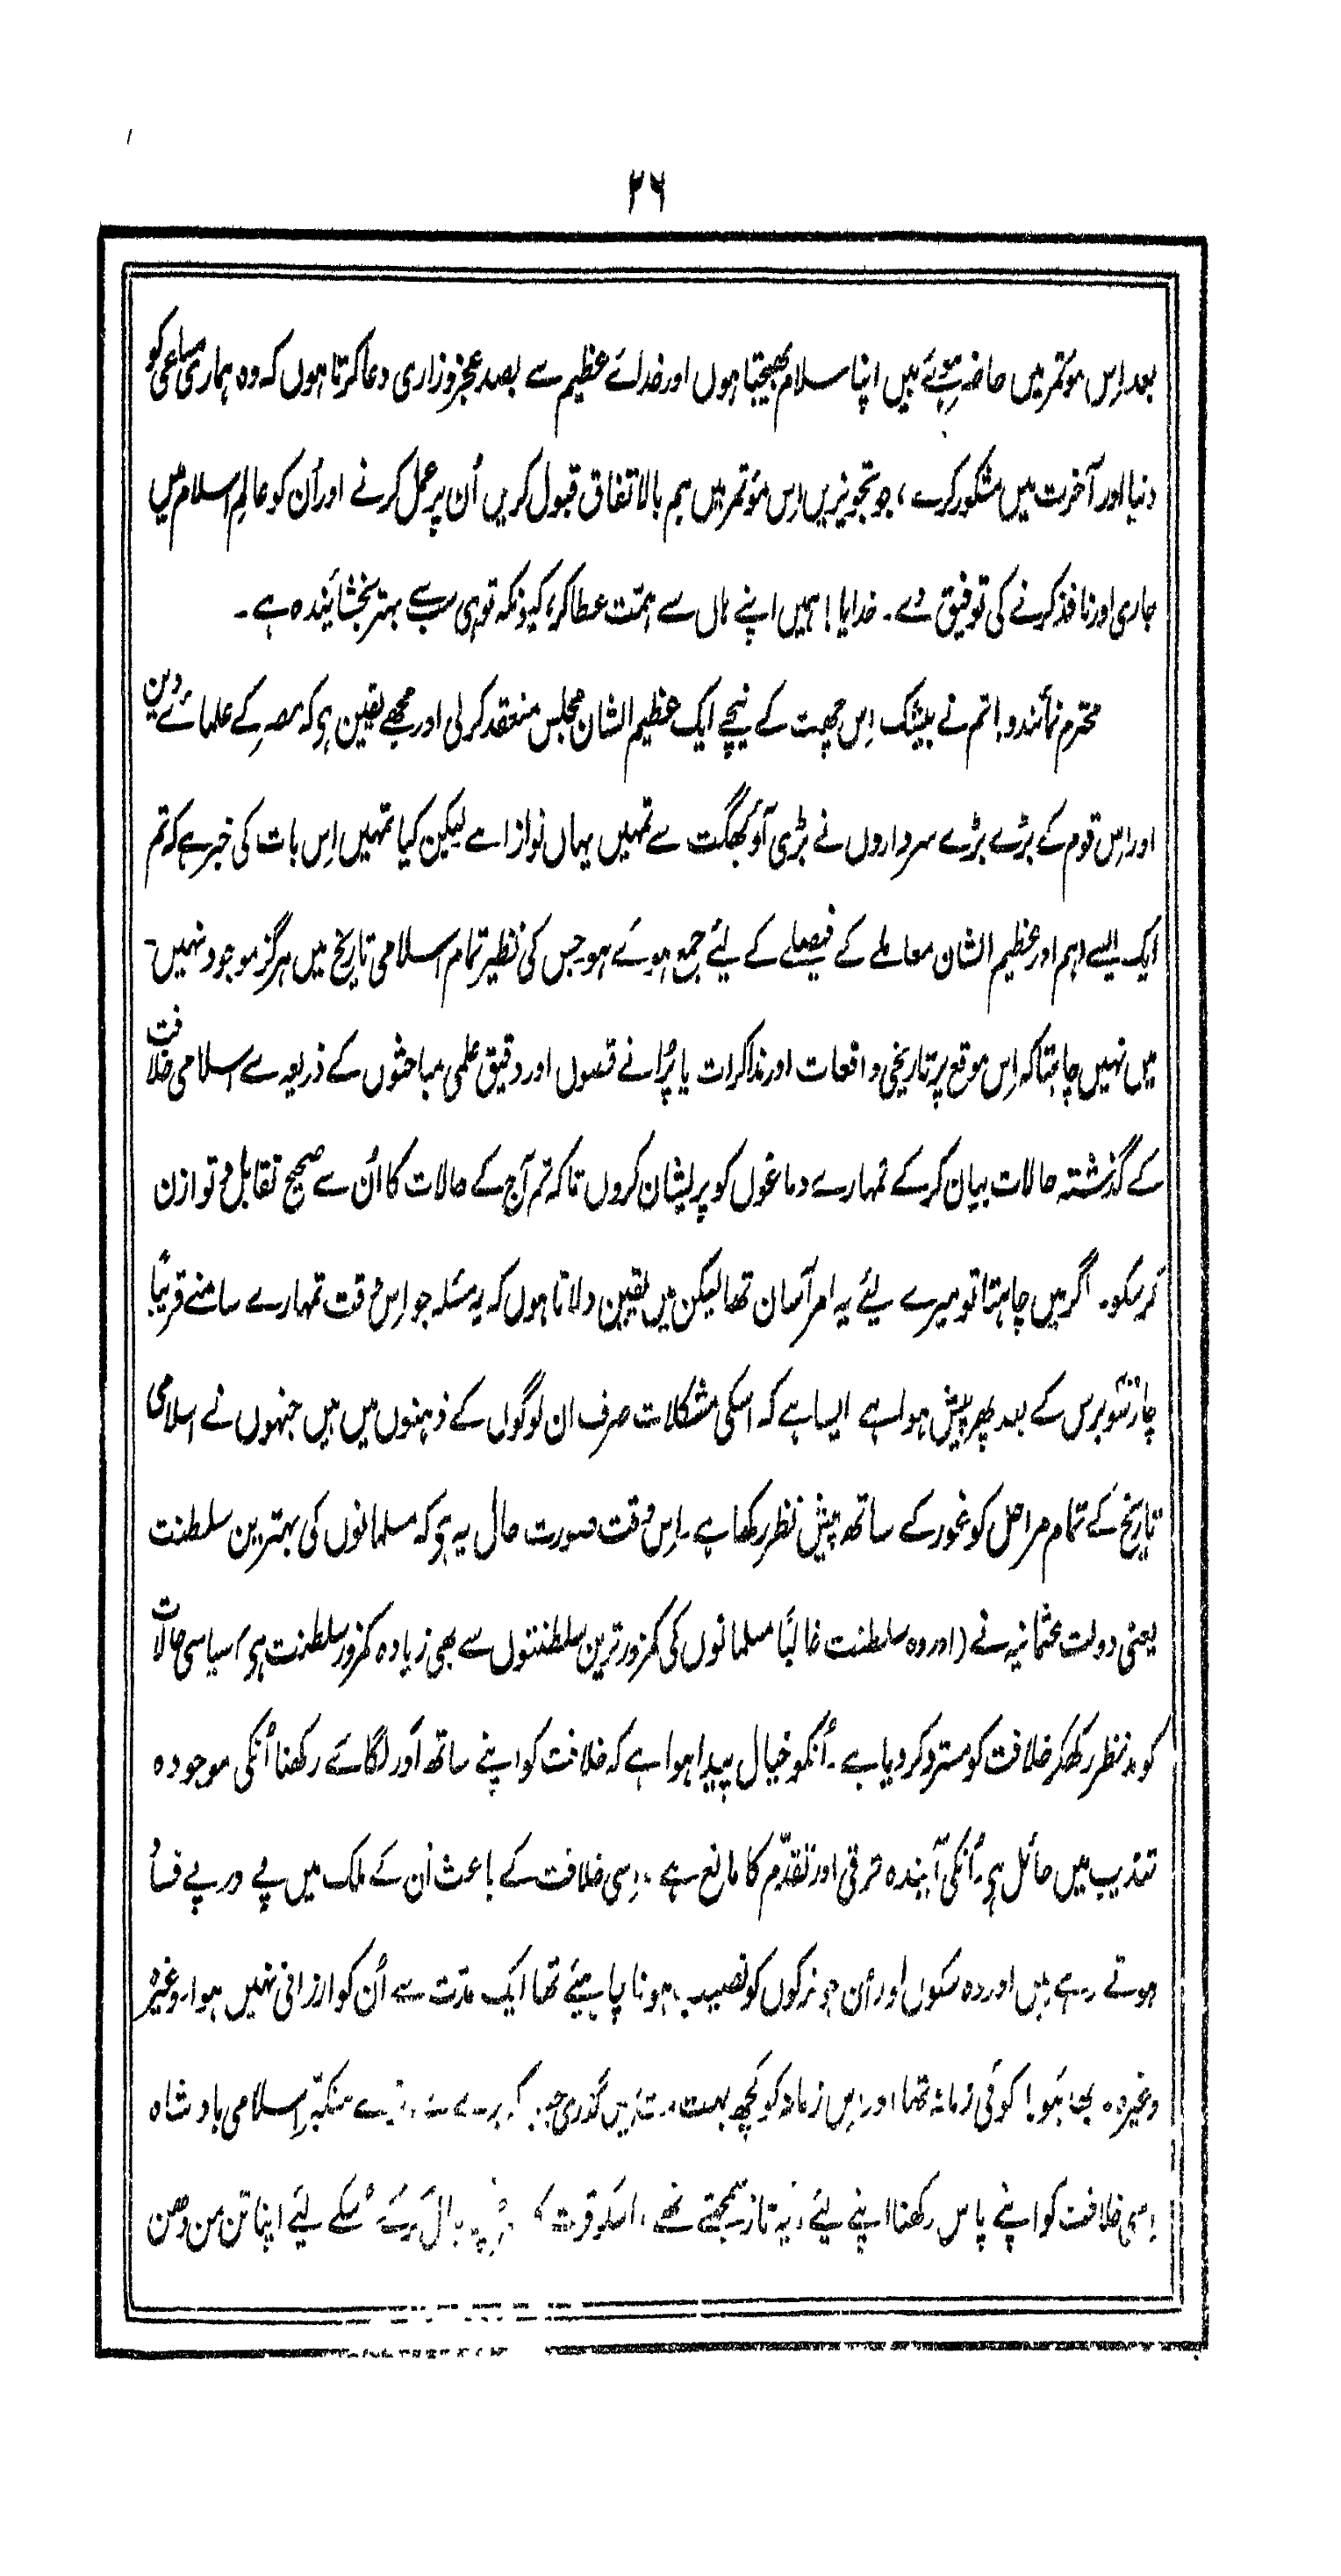 ۲۶
بعد اِس مؤتمر میں حاضر ہوئے ہیں اپنا سلام بھیجتا ہوں اور خدائے عظیم سے بصد عجز و زاری دعا کرتا ہوں کہ وہ ہماری مساعی کو
دنیا اور آخرت میں مشکور کرے، جو تجویزیں اِس مؤتمر میں ہم بالاتفاق قبول کریں اُن پر عمل کرنے اور اُن کو عالمِ اسلام میں
جاری اور نافذ کرنے کی توفیق دے۔ خدایا! ہمیں اپنے ہاں سے ہمّت عطا کر، کیونکہ تو ہی سب سے بہتر بخشایندہ ہے۔
محترم نمائندو! تم نے بیشک اِس چھت کے نیچے ایک عظیم الشان مجلس منعقد کر لی اور مجھے یقین ہی کہ مصر کے علمائے دین
اور اِس قوم کے بڑے بڑے سرداروں نے بڑی آؤ بھگت سے تمہیں یہاں نوازا ہے لیکن کیا تمہیں اِس بات کی خبر ہے کہ تم
ایک ایسے اہم اور عظیم الشان معاملے کے فیصلے کے لیئے جمع ہوئے ہو جس کی نظیر تمام اسلامی تاریخ میں ہرگز موجود نہیں۔
میں نہیں چاہتا کہ اِس موقع پر تاریخی واقعات اور مذاکرات یا پُرانے قصوں اور دقیق علمی مباحثوں کے ذریعہ سے اسلامی خلافت
کے گذشتہ حالات بیان کر کے تمہارے دماغوں کو پریشان کروں تاکہ تم آج کے حالات کا اُن سے صحیح تقابل و توازن
کر سکو۔ اگر میں چاہتا تو میرے لیئے یہ امر آسان تھا لیکن میں یقین دلاتا ہوں کہ یہ مسئلہ جو اِس وقت تمہارے سامنے قریباً
چار سَو برس کے بعد پھر پیش ہوا ہے ایسا ہے کہ اسکی مشکلات صرف ان لوگوں کے ذہنوں میں ہیں جنہوں نے اسلامی
تاریخ کے تمام مراحل کو غور کے ساتھ پیشِ نظر رکھا ہے۔ اِس وقت صورت حال یہ ہی کہ مسلمانوں کی بہترین سلطنت
یعنی دولت عثمانیہ نے (اور وہ سلطنت غالباً مسلمانوں کی کمزور ترین سلطنتوں سے بھی زیادہ کمزور سلطنت ہی) سیاسی حالات
کو مدنظر رکھکر خلافت کو مسترد کر دیا ہے۔ اُنکو خیال پیدا ہوا ہے کہ خلافت کو اپنے ساتھ اَور لگائے رکھنا اُنکی موجودہ
تہذیب میں حائل ہی۔ اُنکی آیندہ ترقی اور تقدّم کا مانع ہے، اِسی خلافت کے باعث اُن کے ملک میں پے در پے فساد
ہوتے رہے ہیں اور وہ سکون اور امن جو ترکوں کو نصیب ہونا چاہیئے تھا ایک مدّت سے اُن کو ارزانی نہیں ہوا۔ وغیرہ
وغیرہ۔ بھائیو! کوئی زمانہ تھا اور اِس زمانہ کو کچھ بہت مدت نہیں گذری جب کہ بڑے سے بڑے متکبّر اسلامی بادشاہ
اِسی خلافت کو اپنے پاس رکھنا اپنے لیئے مایہ ناز سمجھتے تھے، اسکو قوت کا خیال کرکے اُسکے لیئے اپنا تن من دھن